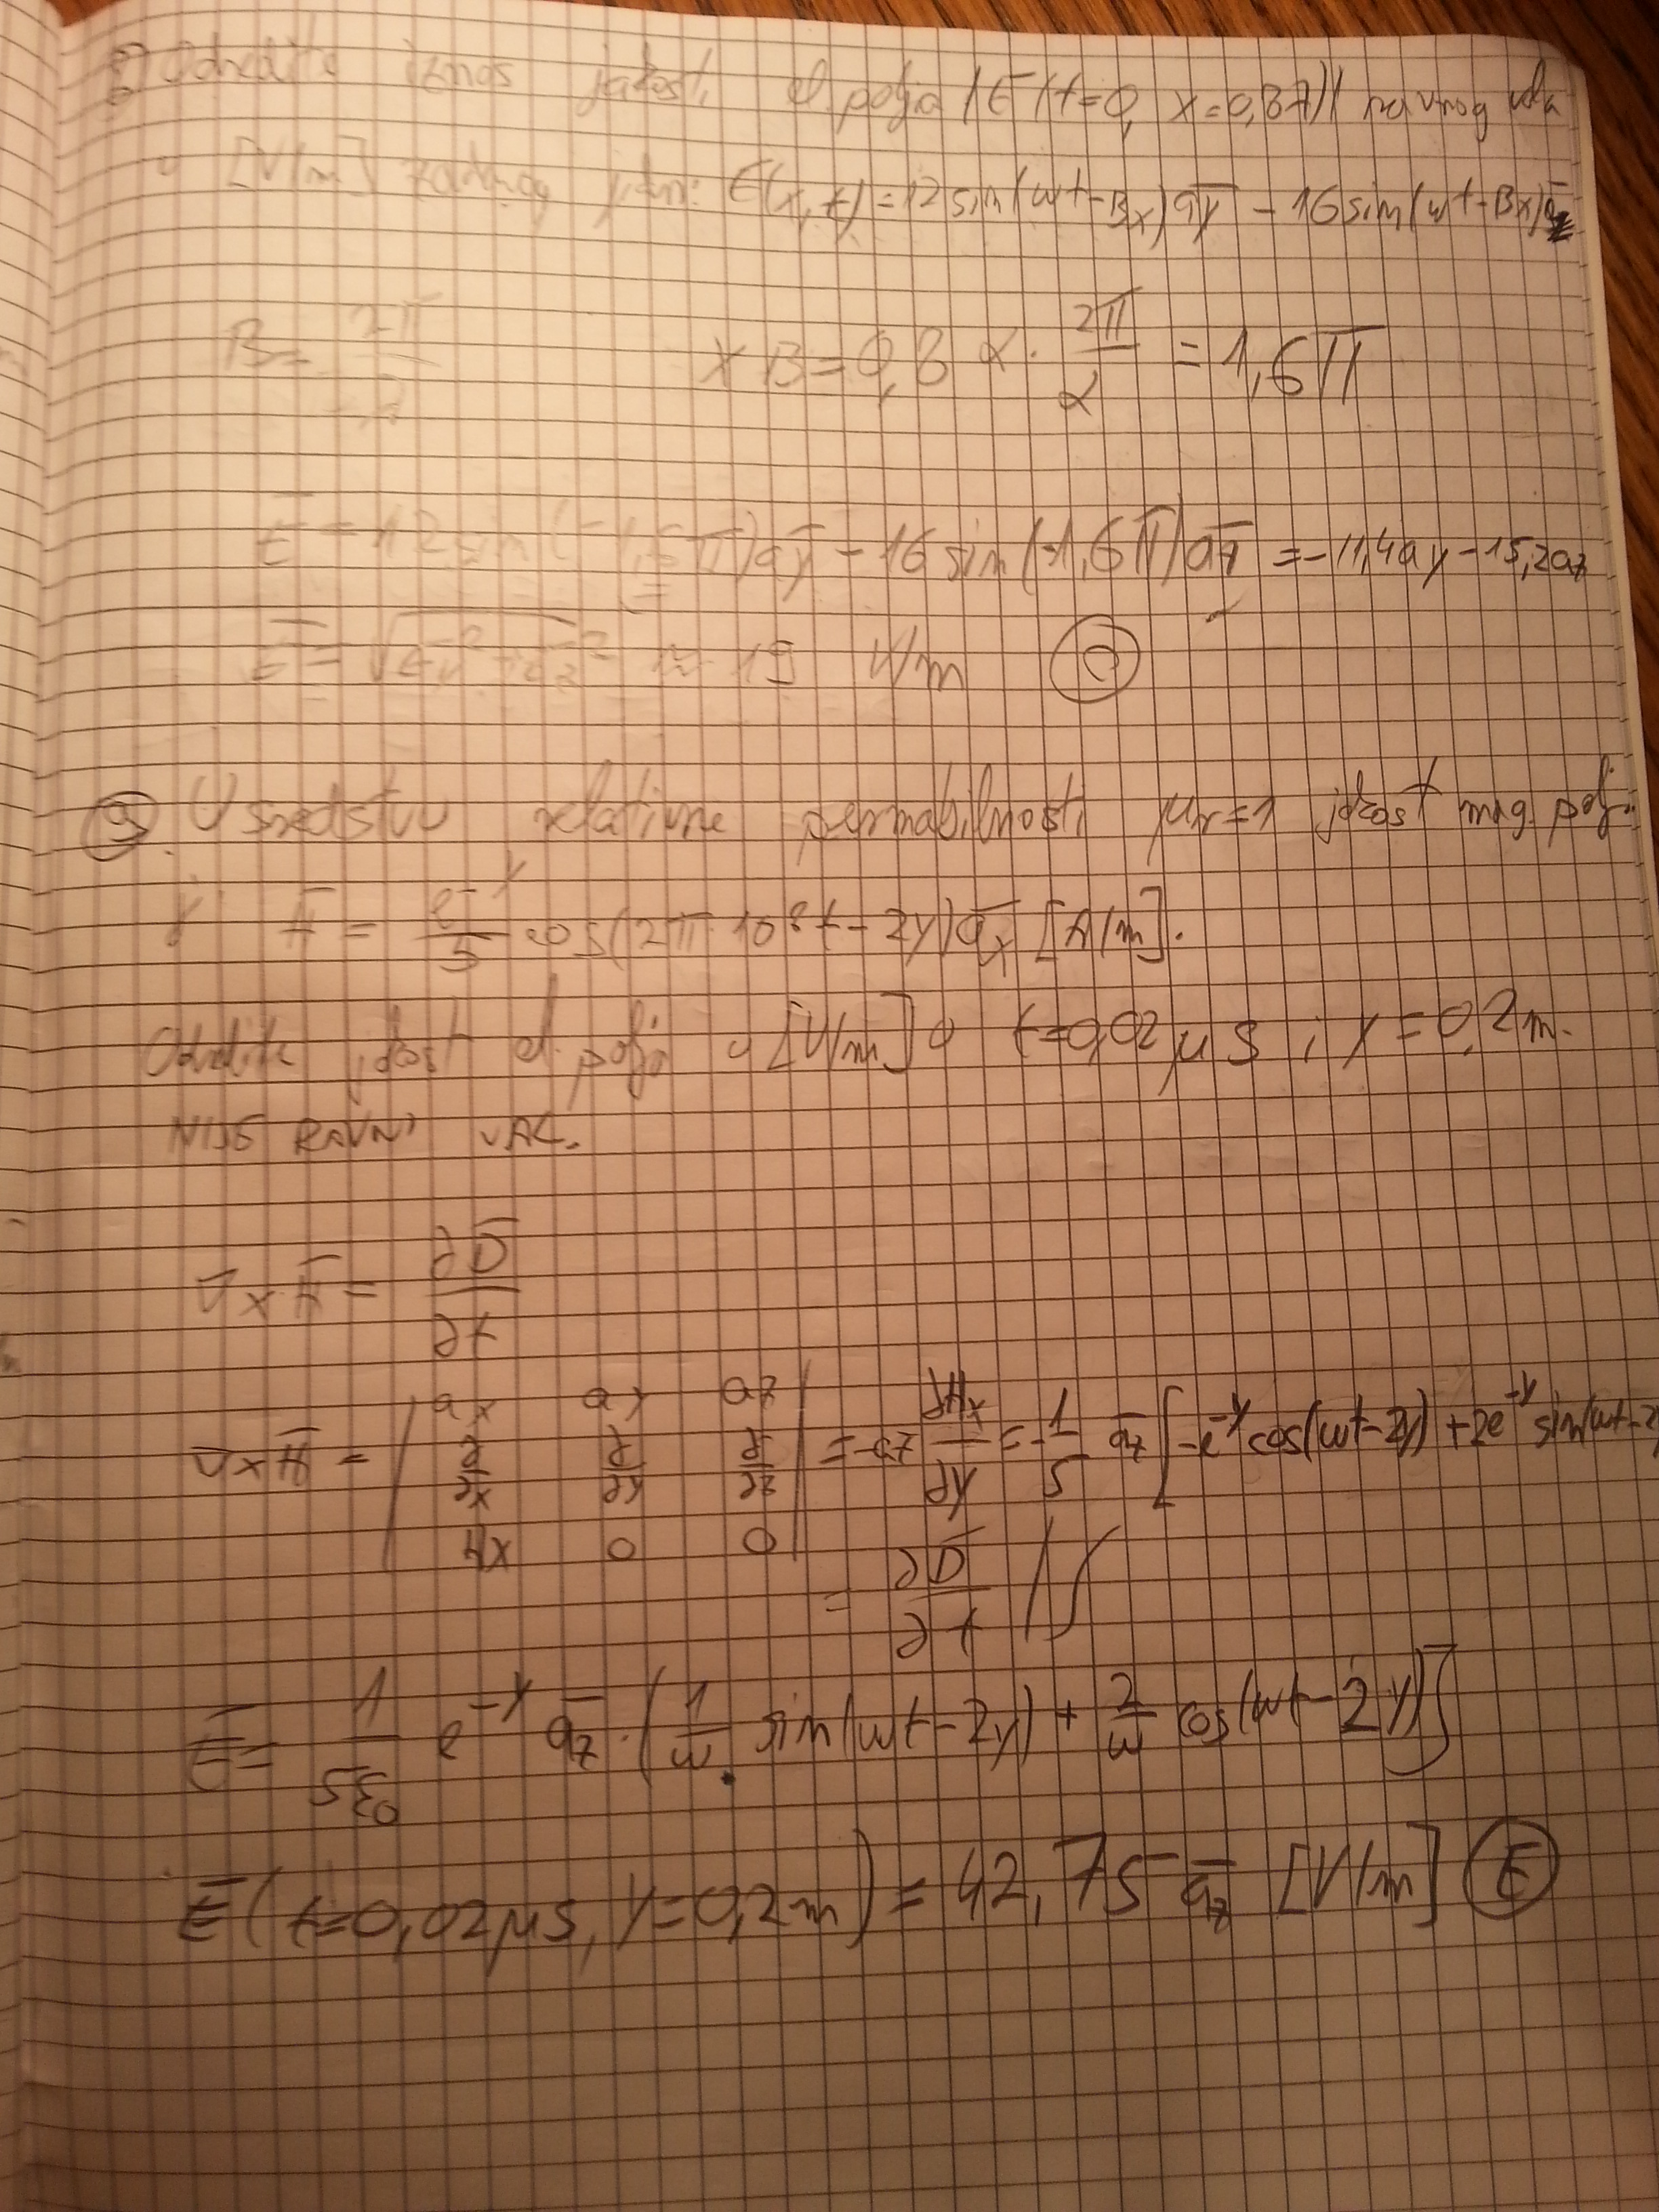 8. Odredite iznos jakosti el. polja |E(t=0, x=0,8λ)| ravnog vala
u [V/m] zadanog jedn: E(x,t)=12sin(ωt-Bx)a̅y - 16sin(ωt-Bx)a̅z
B = 2π/λ   xB = 0,8 λ · 2π/λ = 1,6π
E̅ = 12sin(-1,6π)a̅y - 16sin(-1,6π)a̅z = -11,4ay - 15,2az
E̅ = √(Ey²+Ez²) ≈ 19 V/m
9. U sredstvu relativne permabilnosti μr=1 jakost mag. polj.
je H̅ = e^-y/5 cos(2π·10^8t-2y)a̅x [A/m].
Odredite jakost el. polja u [V/m] u t=0,02μs i y=0,2m.
NIJE RAVNI VAL.
∇×H̅ = ∂D̅/∂t
∇×H̅ = | ax ay az | = -az ∂Hx/∂y = -1/5 a̅z [-e^-y cos(ωt-2y) + 2e^-y sin(ωt-2y
∂/∂x ∂/∂y ∂/∂z
Hx 0 0
= ∂D̅/∂t /∫
E̅ = 1/5ε0 e^-y a̅z · (1/ω sin(ωt-2y) + 2/ω cos(ωt-2y)]
E̅(t=0,02μs, y=0,2m) = 42,75 a̅z [V/m] E